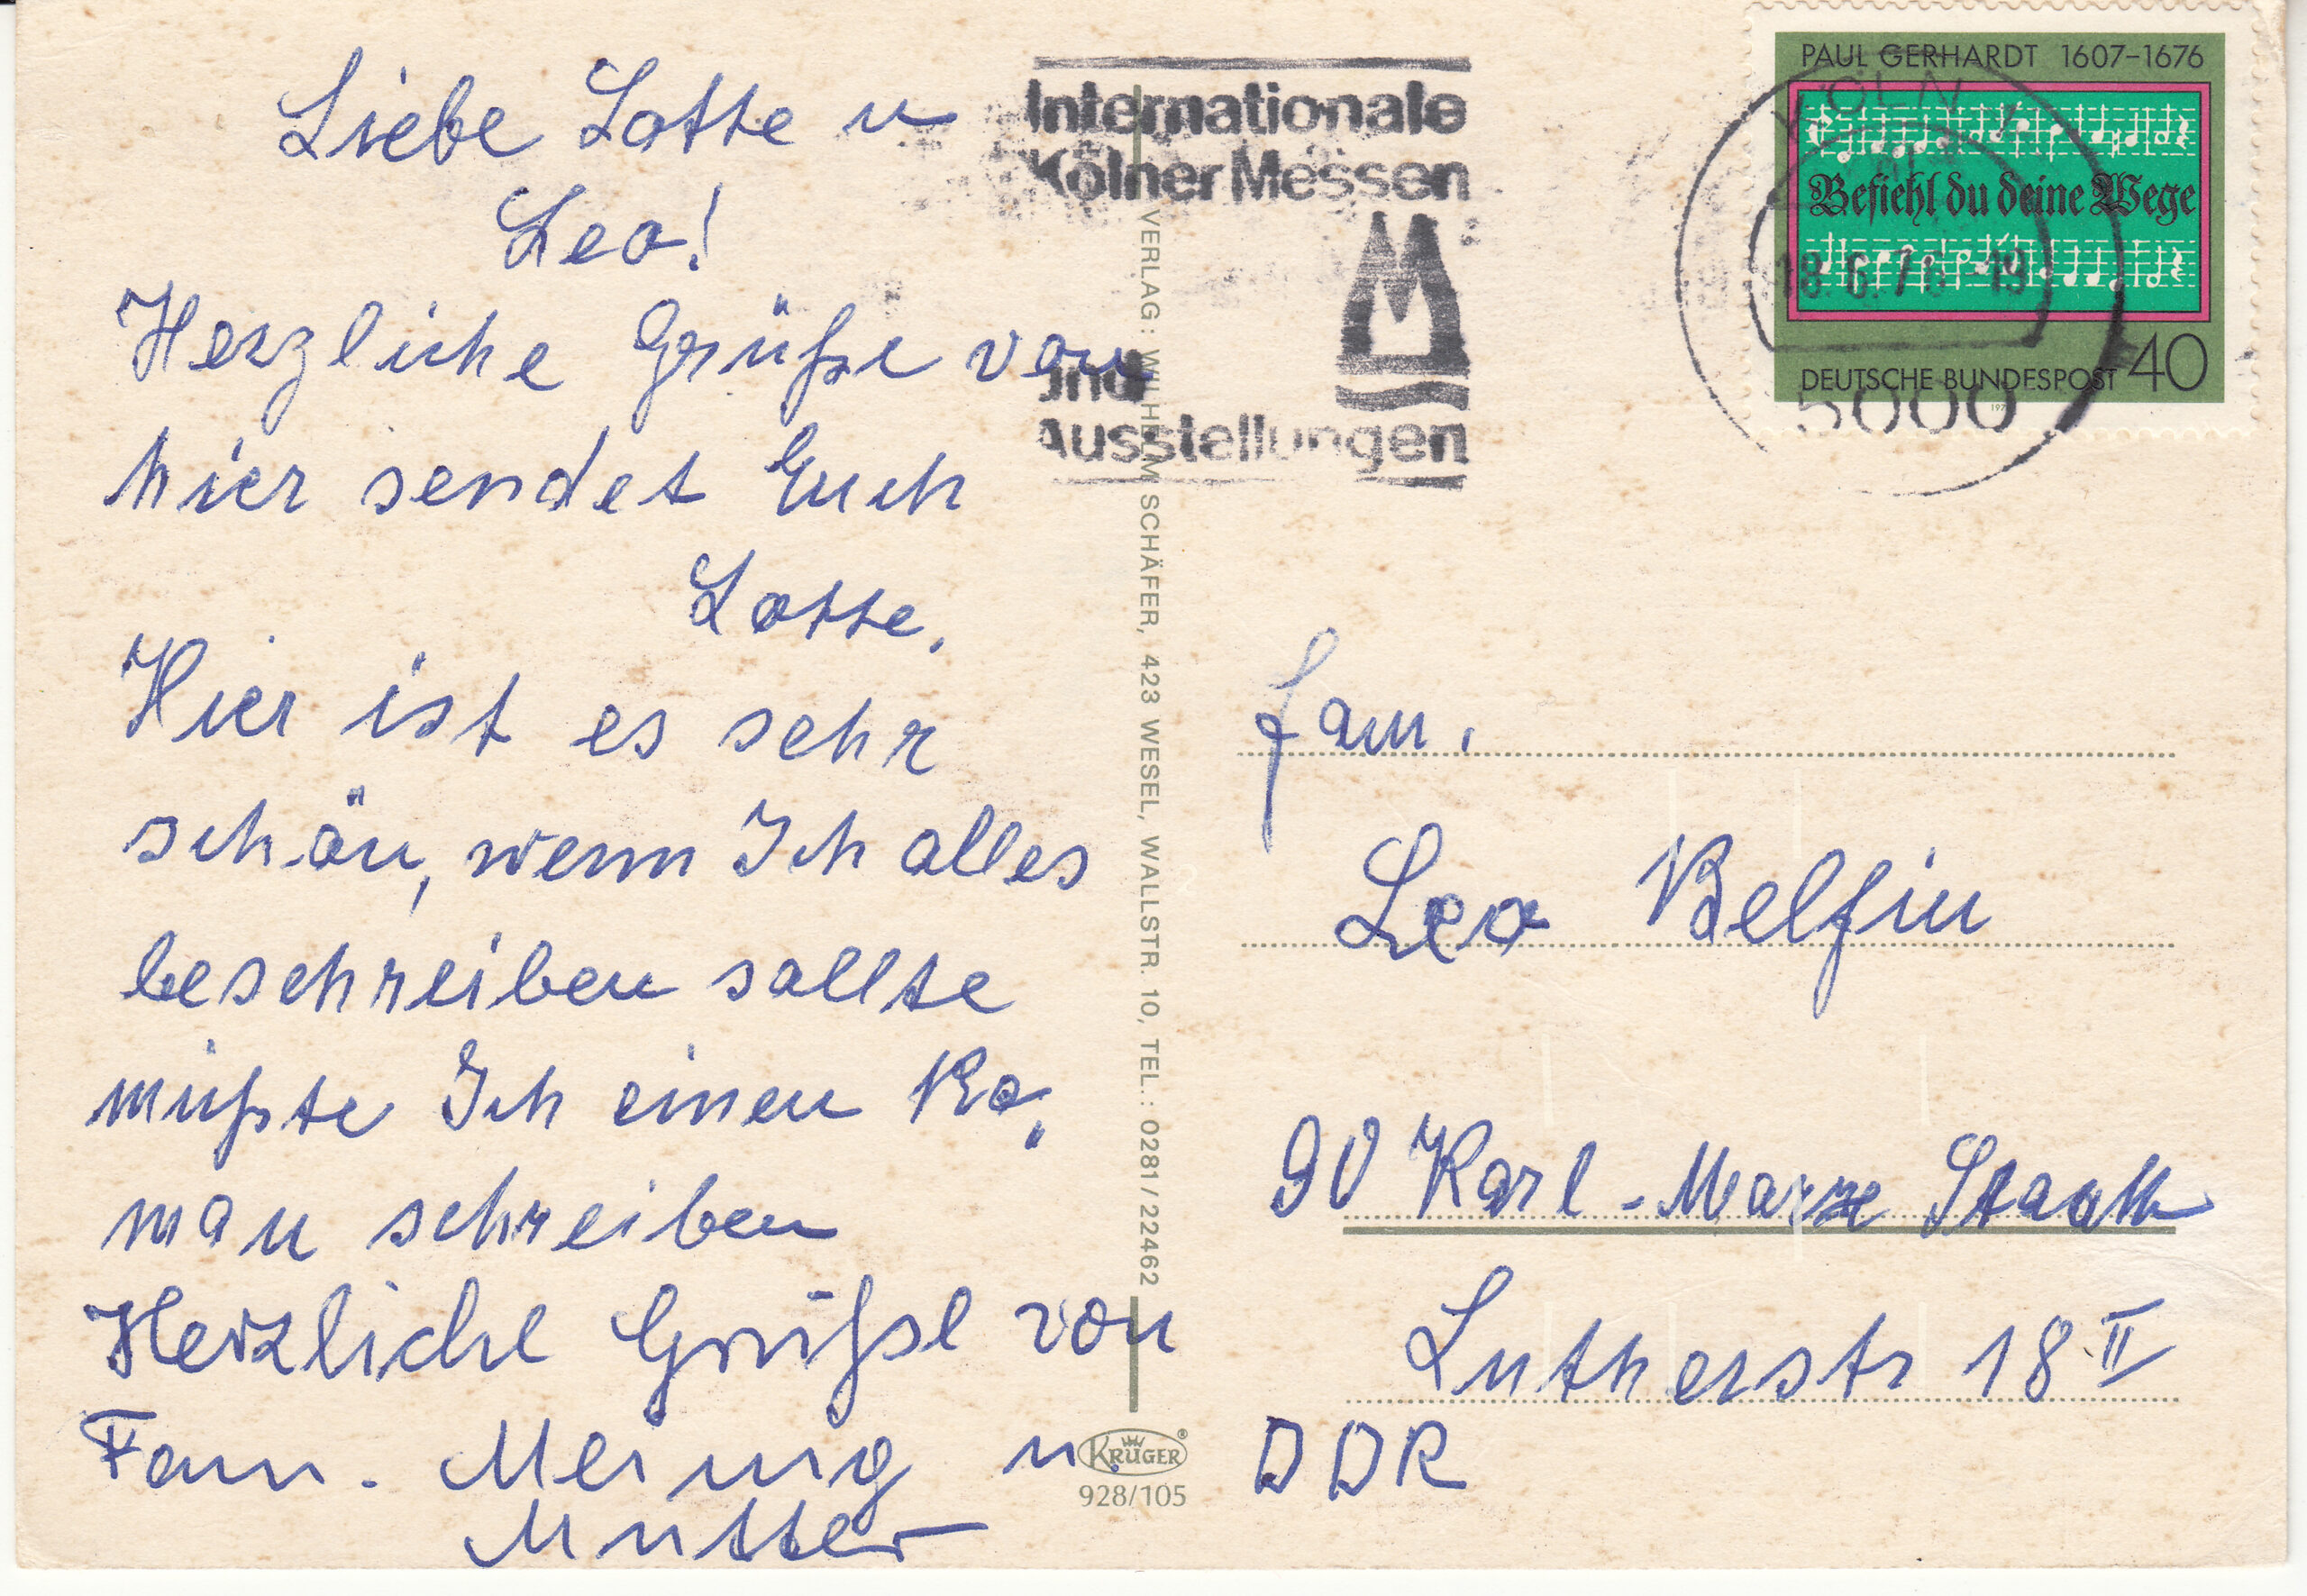 Liebe Lotte u
Leo!
Herzliche Grüße von
hier sendet Euch
Lotte.
Hier ist es sehr
schön, wenn Ich alles
beschreiben sollte
müßte Ich einen Ro„
man schreiben
Herzliche Grüße von
Fam. Meinig u.
Mutter
Internationale
Kölner Messen
und
Ausstellungen
VERLAG: WILHELM SCHÄFER, 423 WESEL, WALLSTR. 10, TEL.: 0281/22462
KRÜGER®
928/105
PAUL GERHARDT 1607–1676
Befiehl du deine Wege
DEUTSCHE BUNDESPOST 40
KÖLN 1
18.6.76-19
5000
Fam.
Leo Belfin
90 Karl-Marx Stadt
Lutherstr 18 II
DDR